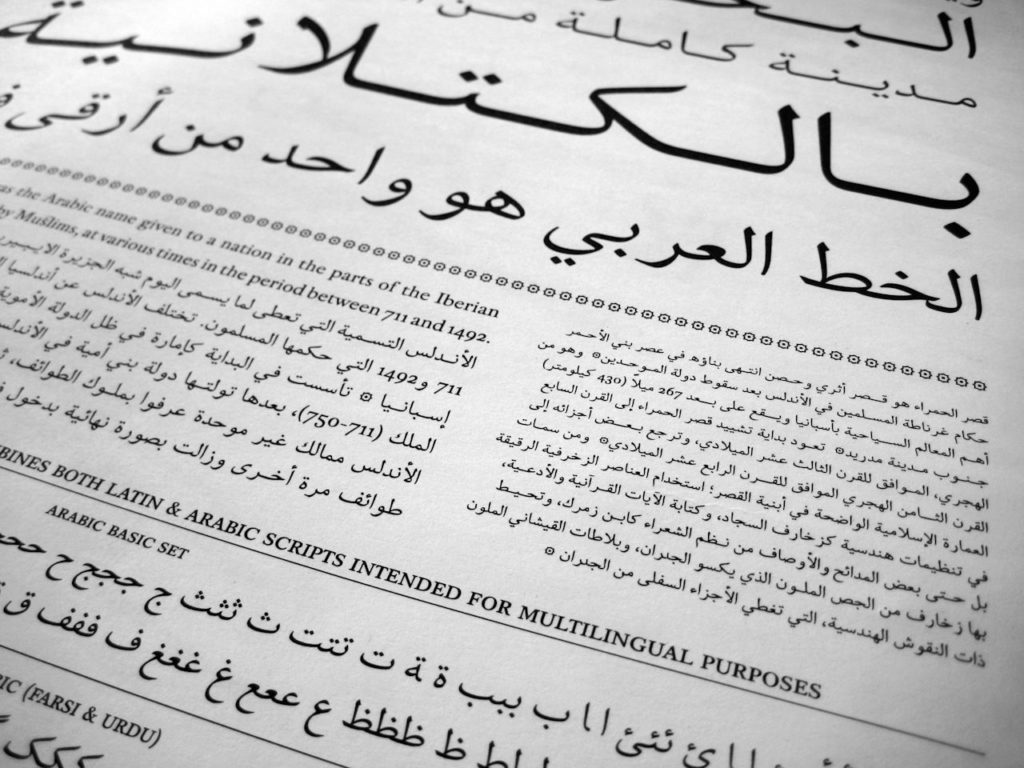 البحـ
مدينة كاملة من
بالكتلانية
الخط العربي هو واحد من أرقى
as the Arabic name given to a nation in the parts of the Iberian
by Muslims, at various times in the period between 711 and 1492.
الأندلس التسمية التي تعطى لما يسمى اليوم شبه الجزيرة الايبيرية
711 و1492 التي حكمها المسلمون. تختلف الأندلس عن أندلسيا
إسبانيا ۞ تأسست في البداية كإمارة في ظل الدولة الأموية
الملك (711-750)، بعدها تولتها دولة بني أمية في الأندلس
الأندلس ممالك غير موحدة عرفوا بملوك الطوائف،
طوائف مرة أخرى وزالت بصورة نهائية بدخول
قصر الحمراء هو قصر أثري وحصن انتهى بناؤه في عصر بني الأحمر
حكام غرناطة المسلمين في الأندلس بعد سقوط دولة الموحدين۞ وهو من
أهم المعالم السياحية بأسبانيا ويقع على بعد 267 ميلا (430 كيلومتر)
جنوب مدينة مدريد۞ تعود بداية تشييد قصر الحمراء إلى القرن السابع
الهجري، الموافق للقرن الثالث عشر الميلادي، وترجع بعض أجزائه إلى
القرن الثامن الهجري الموافق للقرن الرابع عشر الميلادي۞ ومن سمات
العمارة الإسلامية الواضحة في أبنية القصر؛ استخدام العناصر الزخرفية الرقيقة
في تنظيمات هندسية كزخارف السجاد، وكتابة الآيات القرآنية والأدعية،
بل حتى بعض المدائح والأوصاف من نظم الشعراء كابن زمرك، وتحيط
بها زخارف من الجص الملون الذي يكسو الجدران، وبلاطات القيشاني الملون
ذات النقوش الهندسية، التي تغطي الأجزاء السفلى من الجدران ۞
BINES BOTH LATIN & ARABIC SCRIPTS INTENDED FOR MULTILINGUAL PURPOSES
ARABIC BASIC SET
ئ ئئئ ا ا ب ببب ة ة ت تتت ث ثثث ج ججج ح ححح
ظ ظظظ ع ععع غ غغغ ف ففف ق
BIC (FARSI & URDU)
ككک